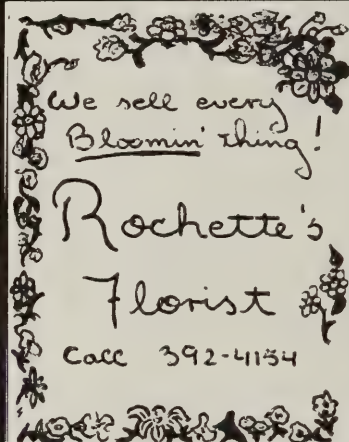 We sell every
Bloomin' thing!
Rochette's
Florist
Call 392-4154